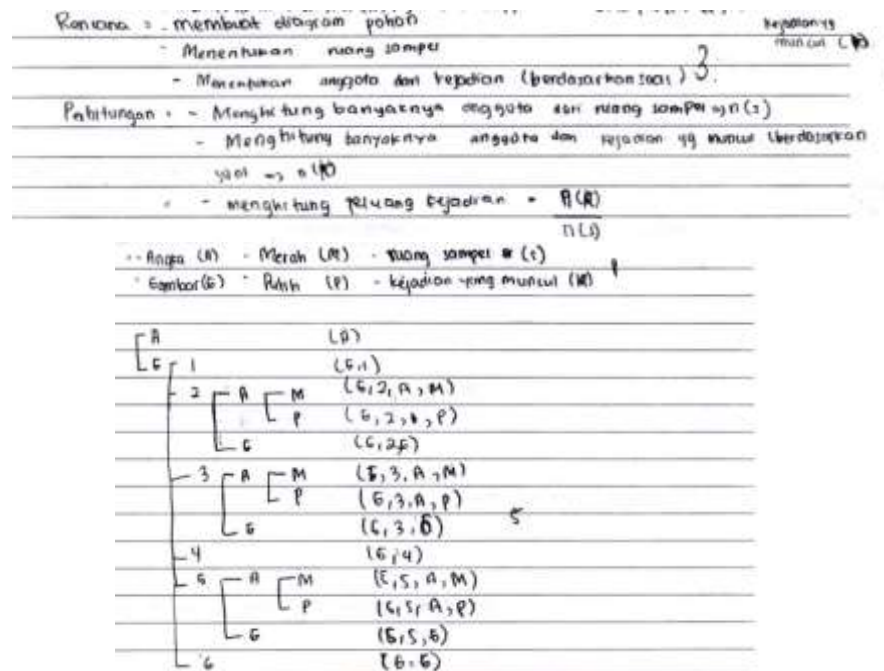 Rencana : - membuat diagram pohon
kejadian yg
muncul (K)
- Menentukan ruang sampel
- Menentukan anggota dari kejadian (berdasarkan soal) 3
Pehitungan : - Menghitung banyaknya anggota dari ruang sampel => n(s)
- Menghitung banyaknya anggota dari kejadian yg muncul (berdasarkan
soal => n(K)
- menghitung peluang kejadian =
n(s)
- Angka (A) - Merah (M) - ruang sampel (s)
- Gambar (G) - Putih (P) - kejadian yang muncul (K) 1
A (A)
G 1 (G,1)
2 A M (G,2,A,M)
P (G,2,A,P)
G (G,2G)
3 A M (G,3,A,M)
P (G,3,A,P)
G (G,3,G) 5
4 (G,4)
5 A M (G,5,A,M)
P (G,5,A,P)
G (G,5,G)
6 (G.6)